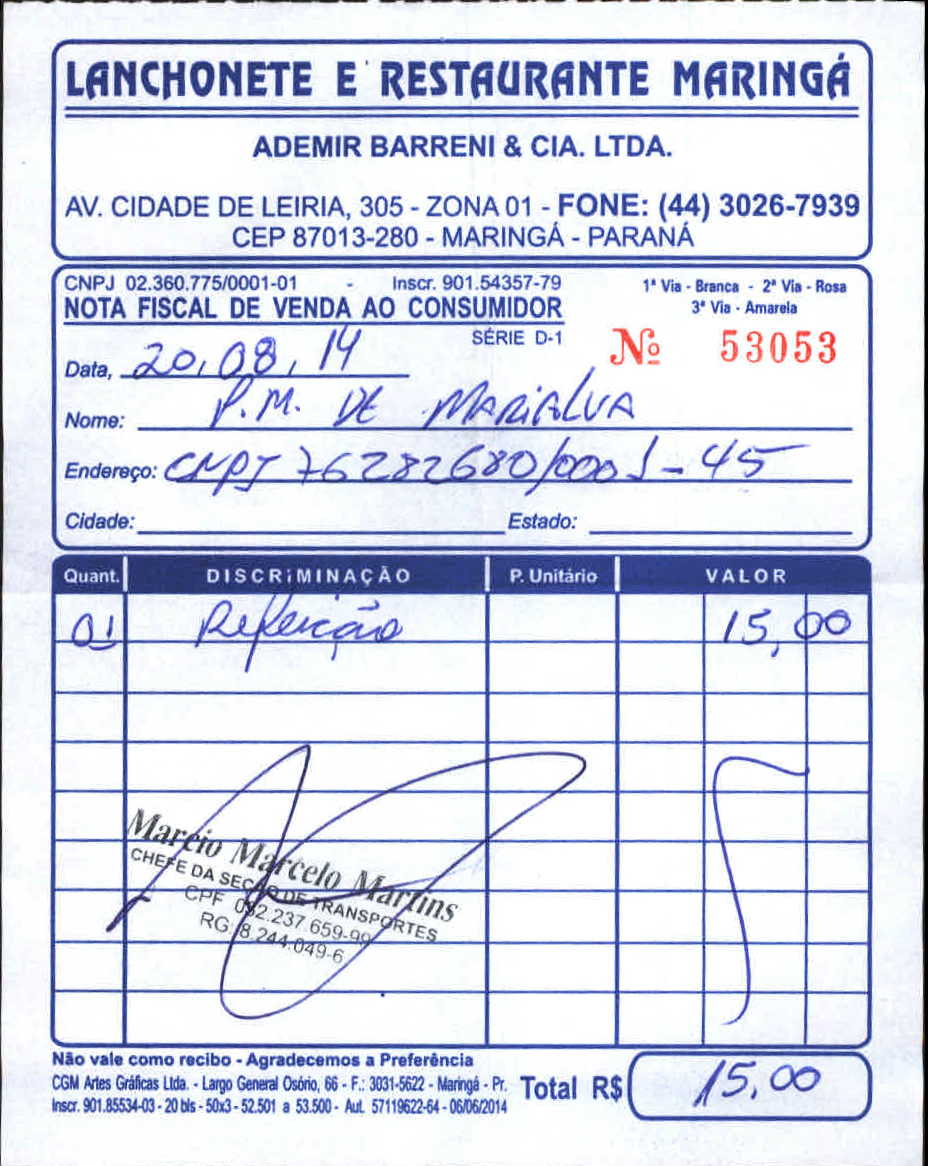 LANCHONETE E RESTAURANTE MARINGÁ
ADEMIR BARRENI & CIA. LTDA.
AV. CIDADE DE LEIRIA, 305 - ZONA 01 - FONE: (44) 3026-7939
CEP 87013-280 - MARINGÁ - PARANÁ
CNPJ 02.360.775/0001-01 - Inscr. 901.54357-79
1ª Via - Branca - 2ª Via - Rosa
3ª Via - Amarela
NOTA FISCAL DE VENDA AO CONSUMIDOR
SÉRIE D-1
Nº 53053
Data, 20,08,14
Nome: P.M. DE MARIALVA
Endereço: CNPJ 76282680/0001-45
Cidade: Estado:
Quant. DISCRIMINAÇÃO P. Unitário VALOR
01 Refeição 15,00
Marcio Marcelo Martins
CHEFE DA SECÃO DE TRANSPORTES
CPF 052.237.659-99
RG: 8.244.049-6
Não vale como recibo - Agradecemos a Preferência
CGM Artes Gráficas Ltda. - Largo General Osório, 66 - F.: 3031-5622 - Maringá - Pr.
Inscr. 901.85534-03 - 20 bls - 50x3 - 52.501 a 53.500 - Aut. 57119622-64 - 06/06/2014
Total R$ 15,00